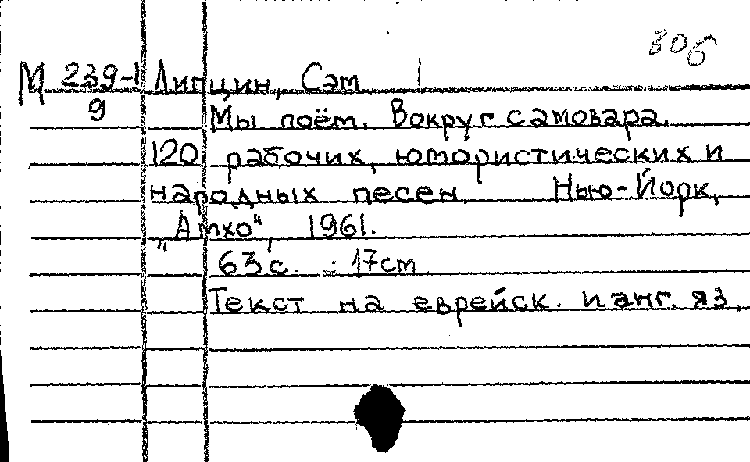 806
М 239-1 Липцин, Сэм
9 Мы поём. Вокруг самовара.
120 рабочих, юмористических и
народных песен. Нью-Йорк,
„Атхо“, 1961.
63 с. 17 cm
Текст на еврейск. и анг. яз.